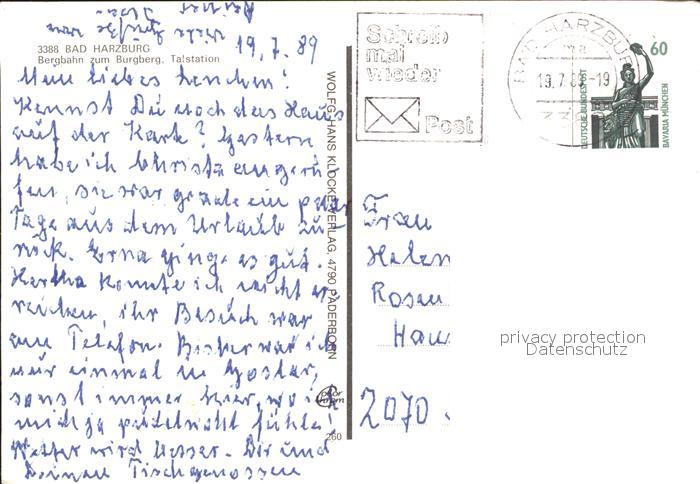 3388 BAD HARZBURG
Bergbahn zum Burgberg, Talstation
19.7.89
Mein liebes Lenchen!
Kennst Du noch das Haus
auf der Karte? Gestern
habe ich Christa angeru-
fen, sie war gerade ein paar
Tage aus dem Urlaub zu-
rück. Erna ginge es gut.
Hertha konnte ich nicht er-
reichen, ihr Besuch war
am Telefon. Bisher war ich
nur einmal in Goslar,
sonst immer hier, wo ich
mich ja pudelnicht fühle!
Wetter wird besser. Dir und
Deinen Tischgenossen
viele Grüße von
Deiner
WOLFG. HANS KLOCKE VERLAG, 4790 PADERBORN
260
Schreib
mal
wieder
Post
BAD HARZBURG
19.7.89-19
60
DEUTSCHE BUNDESPOST
BAVARIA MÜNCHEN
Frau
Helen
Rosen
Haus
2070
privacy protection
Datenschutz